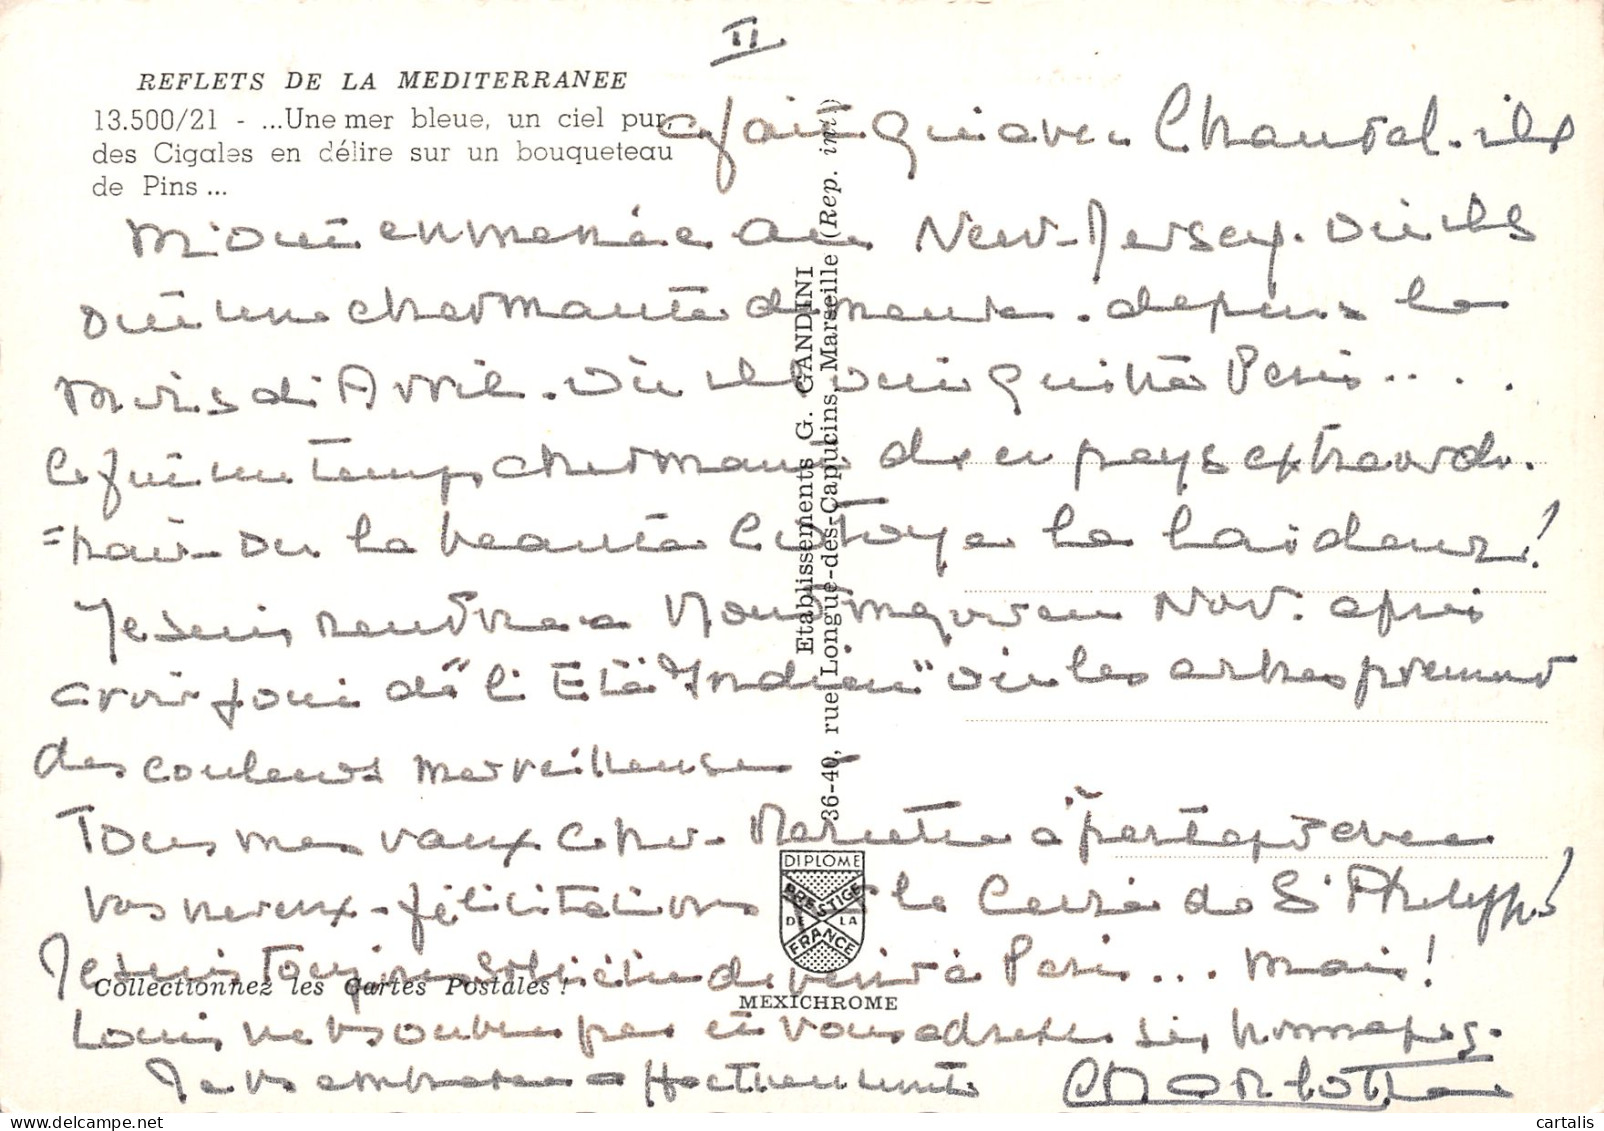 II
REFLETS DE LA MEDITERRANEE
13.500/21 - ...Une mer bleue, un ciel pur,
des Cigales en délire sur un bouqueteau
de Pins ...
avec Chantal. ils
m'ont emmenée au New-Jersey. où ils
ont une charmante demeure. depuis le
mois d'Avril. où ils ont quitté Paris....
Ce fut un temps charmant de ce pays extraordi.
=naire où la beauté cotoye la laideur!
Je suis rentrée a Montmagny en Nov. après
avoir joui de "l'Eté Indien" où les arbres prennent
des couleurs merveilleuses -
Tous mes vœux chère à partager avec
vos neveux - félicitations le Curé de St Philippe!
Je suis toujours de venir à Paris... mais!
Louis ne vs oublie pas et vous adresse ses hommages.
Je vs embrasse affectueusement Charlotte
Etablissements G. GANDINI
36-40, rue Longue-des-Capucins, Marseille (Rep. int.)
DIPLOME
PRESTIGE
DE LA
FRANCE
Collectionnez les Cartes Postales !
MEXICHROME
cartalis